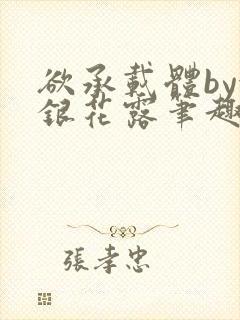 欲承載體by
銀花露筆趣
張孝忠